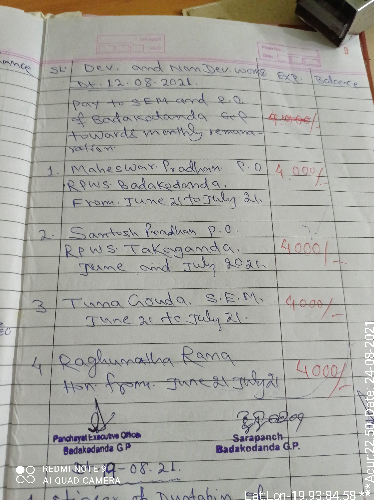 SL. Dev. and Non Dev. works EXP. Balance
Dt. 12.08.2021.
Pay to SEM and P.O
of Badakodanda G.P
towards monthly remun-
ration
1. Maheswar Pradhan P.O 4,000/-
RPWS Badakodanda.
From June 21 to July 21.
2. Santosh Pradhan P.O.
RPWS. Takaganda. 4000/-
June and July 2021.
3 Tuna Gouda. S.E.M. 4000/-
June 21 to July 21.
4 Raghunatha Rana 4000/-
Hon from June 21 July 21
Panchayat Executive Officer Sarapanch
Badakodanda G.P Badakodanda G.P.
08.21.
REDMI NOTE 9
AI QUAD CAMERA
Lat Lon-19.93:84.58 **Acur-22.50|Date:24-09-2021